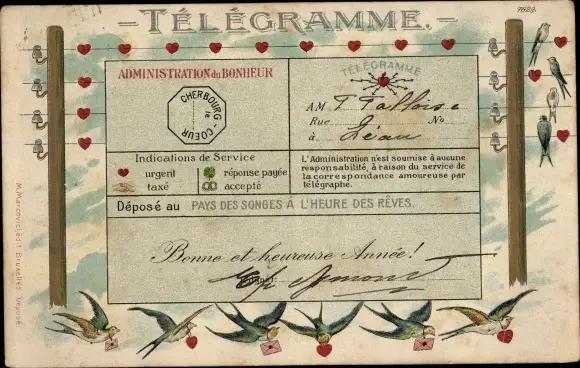 TÉLÉGRAMME.
7829.
ADMINISTRATION du BONHEUR
CHERBOURG
le
CŒUR
TÉLÉGRAMME
AM
Rue No
à
Indications de Service
urgent réponse payée
taxé accepté
L'Administration n'est soumise à aucune
responsabilité, à raison du service de
la correspondance amoureuse par
télégraphe.
Déposé au PAYS DES SONGES À L'HEURE DES RÊVES.
Bonne et heureuse Année!
M. Marcovici, édit. Bruxelles. Déposé